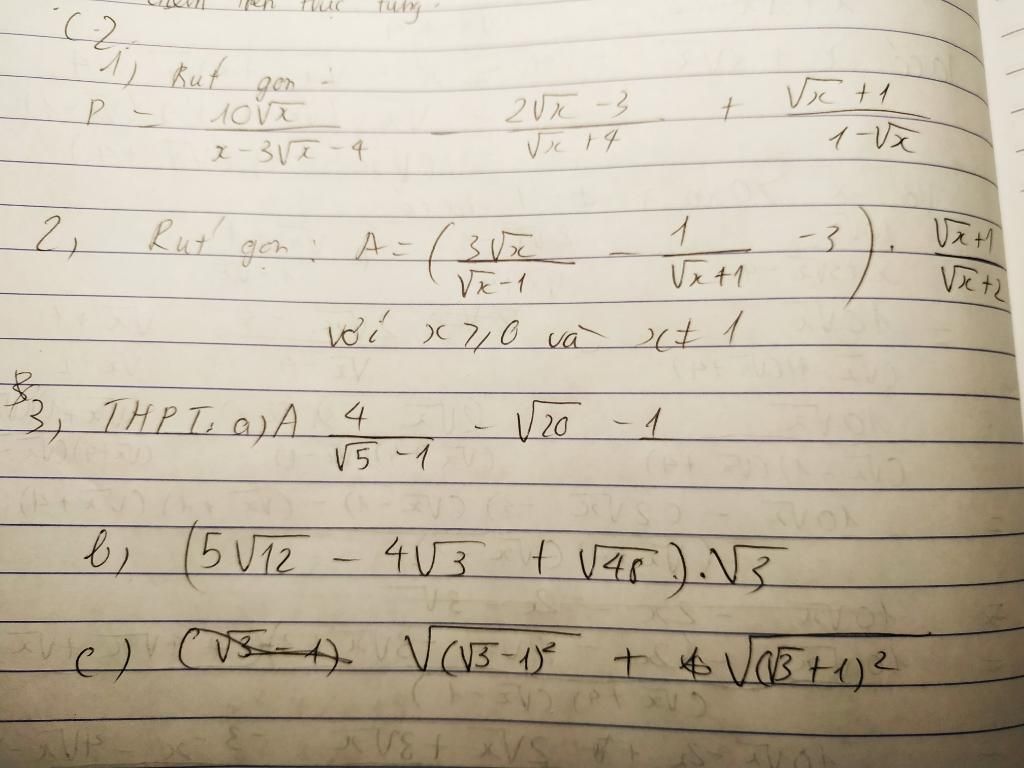 C2.
1) Rút gọn:
P = 10√x / (x - 3√x - 4) - (2√x - 3) / (√x + 4) + (√x + 1) / (1 - √x)
2, Rút gọn: A = (3√x / (√x - 1) - 1 / (√x + 1) - 3) . (√x + 1) / (√x + 2)
với x ⩾ 0 và x ≠ 1
3, THPT: a) A 4 / (√5 - 1) - √20 - 1
b, (5√12 - 4√3 + √48) . √3
c) √(√3 - 1)² + √(√3 + 1)²